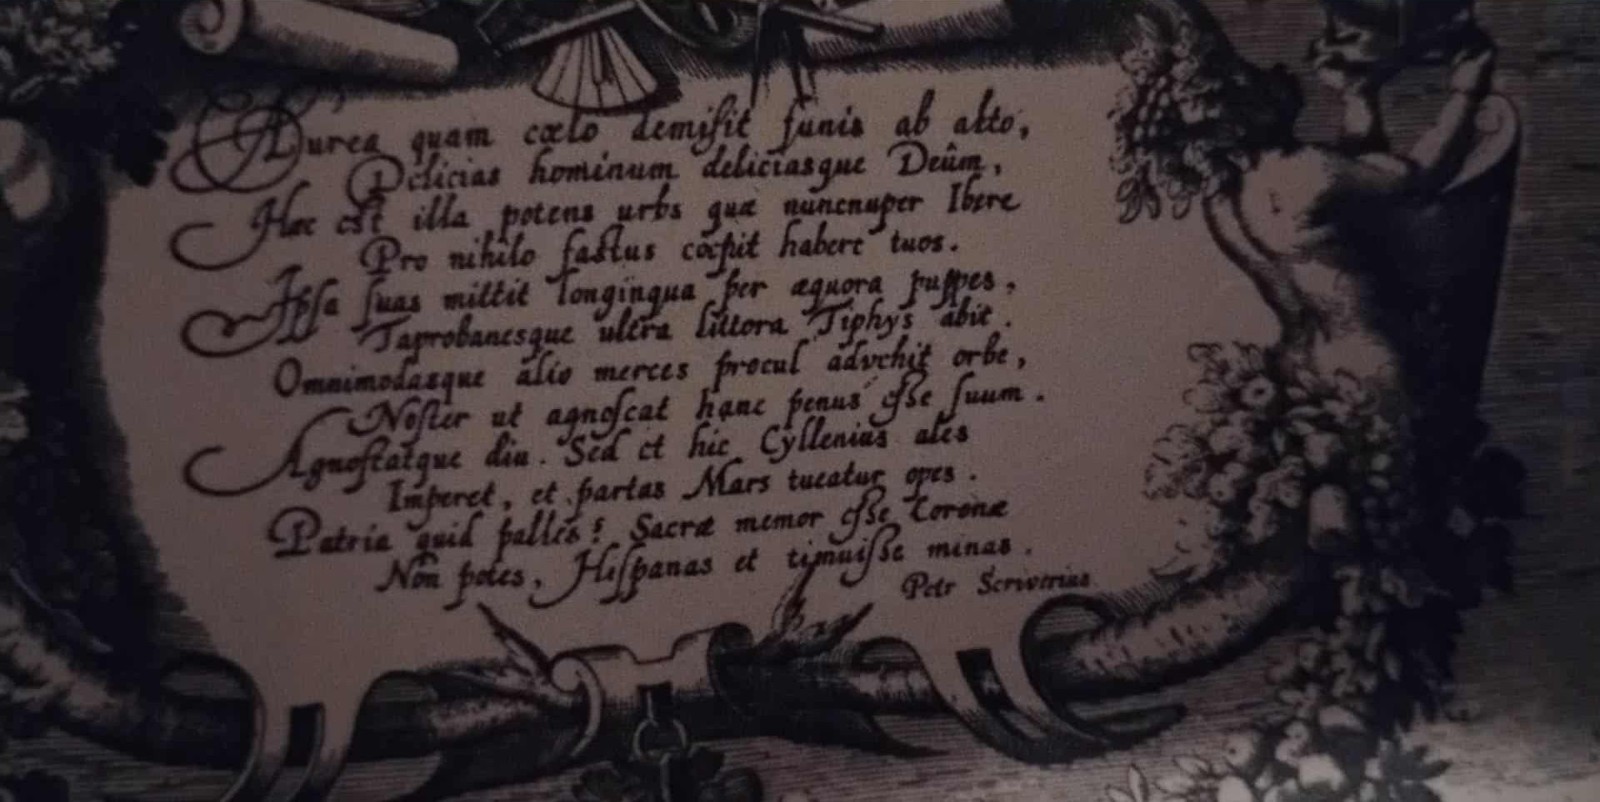 Aurea quam cœlo demiſit funis ab alto,
Delicias hominum deliciasque Deûm,
Hæc eſt illa potens urbs quæ nuncnuper Ibere
Pro nihilo faſtus cœpit habere tuos.
Ipſa ſuas mittit longinqua per æquora puppes,
Taprobanesque ultra littora Tiphys abit.
Omnimodasque alio merces procul advehit orbe,
Noſter ut agnoſcat hanc penus eſſe ſuum.
Agnoſcatque diu. Sed et hic Cyllenius ales
Imperet, et partas Mars tueatur opes.
Patria quid palles? Sacræ memor eſſe Coronæ
Non potes, Hiſpanas et timuiſſe minas.
Petr Scriverius